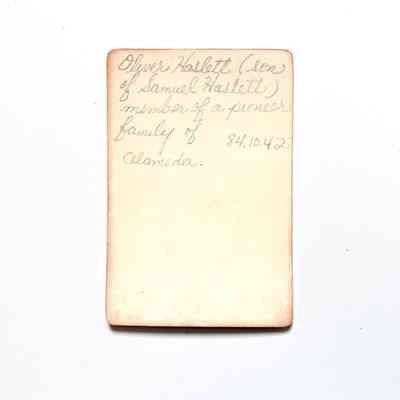 Oliver Haslett (son
of Samuel Haslett)
member of a pioneer
family of 84.10.42
Alameda.